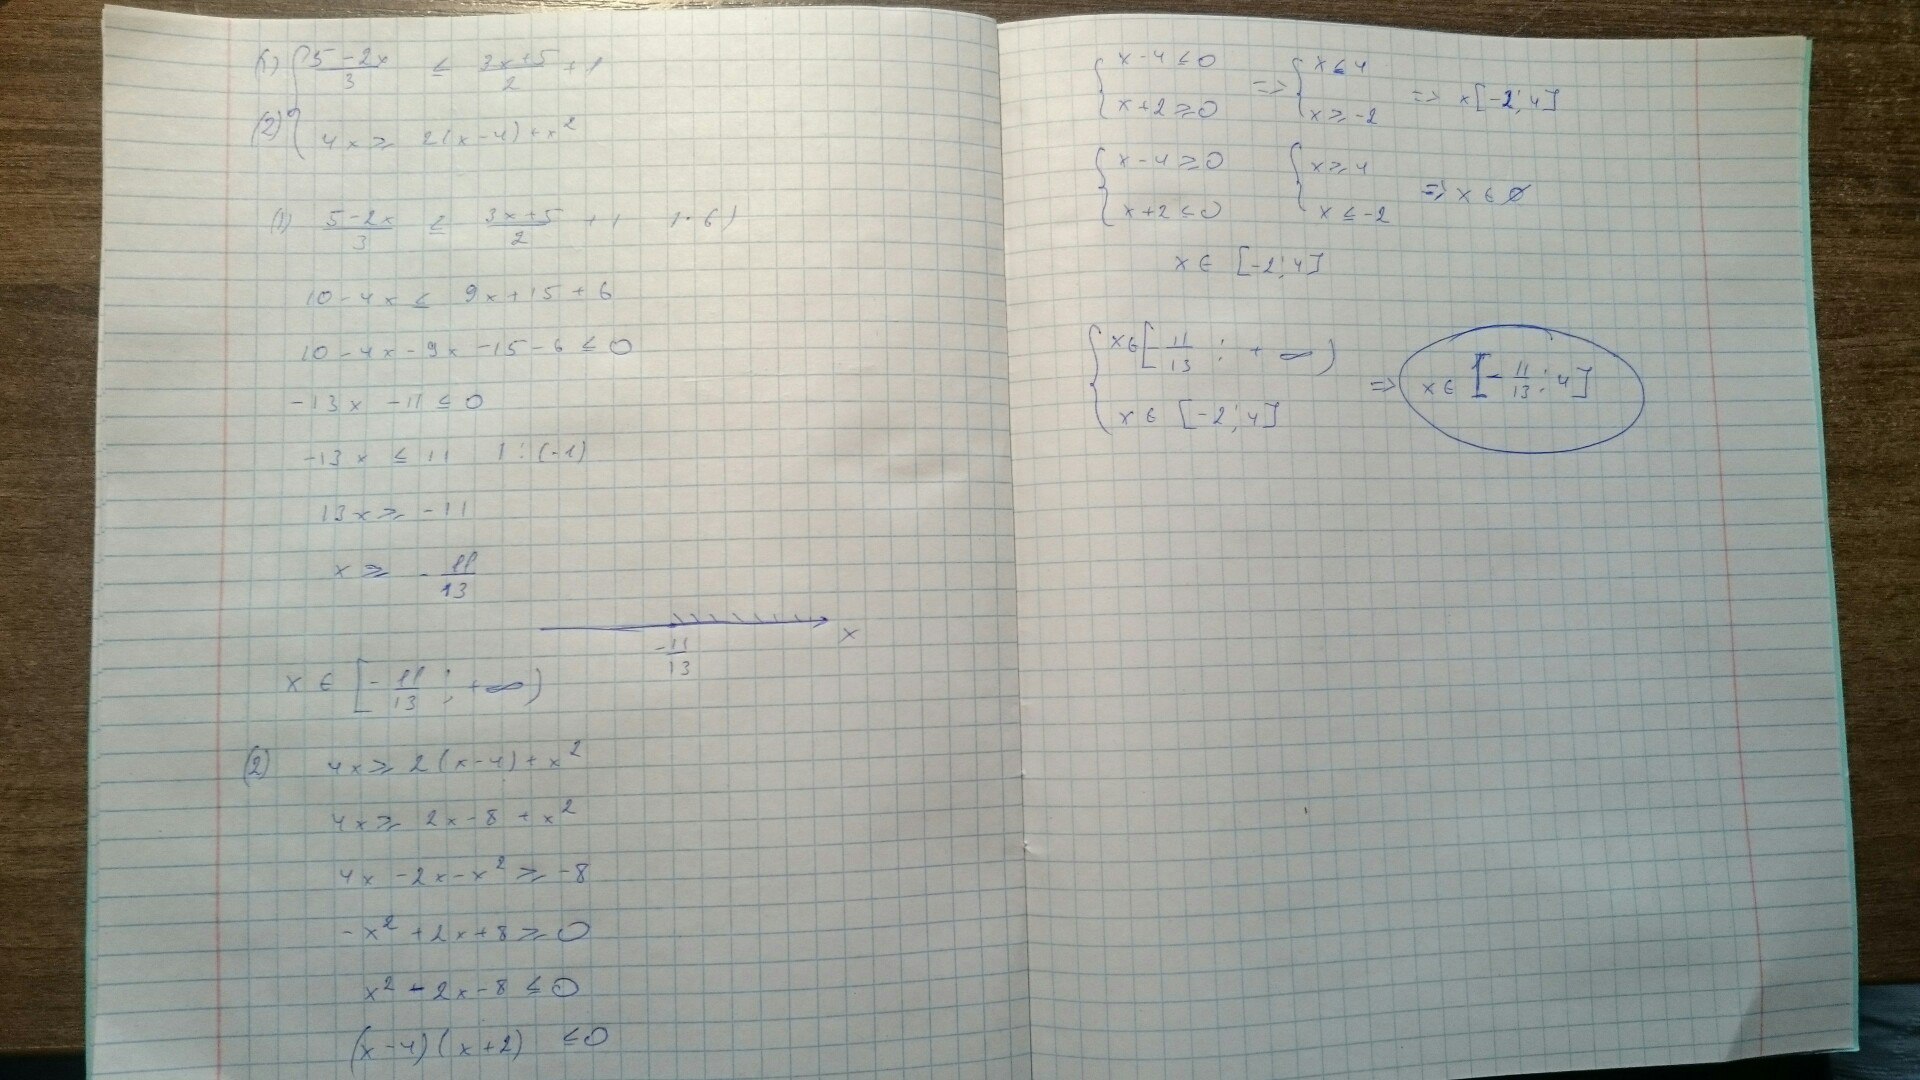 (1) { (5-2x)/3 ≤ (3x+5)/2 + 1
(2) { 4x ≥ 2(x-4)+x²
(1) (5-2x)/3 ≤ (3x+5)/2 + 1 |·6)
10-4x ≤ 9x+15+6
10-4x-9x-15-6 ≤ 0
-13x -11 ≤ 0
-13x ≤ 11 |:(-1)
13x ≥ -11
x ≥ -11/13
-11/13 x
x ∈ [-11/13 ; +∞)
(2) 4x ≥ 2(x-4)+x²
4x ≥ 2x-8+x²
4x -2x-x² ≥ -8
-x²+2x+8 ≥ 0
x²-2x-8 ≤ 0
(x-4)(x+2) ≤ 0
{ x-4 ≤ 0 => { x ≤ 4 => x[-2;4]
{ x+2 ≥ 0 { x ≥ -2
{ x-4 ≥ 0 { x ≥ 4 => x ∈ ∅
{ x+2 ≤ 0 { x ≤ -2
x ∈ [-2;4]
{ x ∈ [-11/13 ; +∞) => x ∈ [-11/13 ; 4]
{ x ∈ [-2;4]